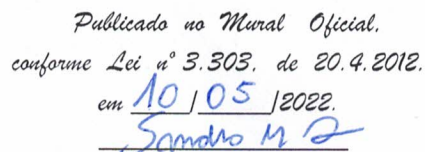 Publicado no Mural Oficial,
conforme Lei nº 3.303, de 20.4.2012.
em 10/05/2022.
Sandro M